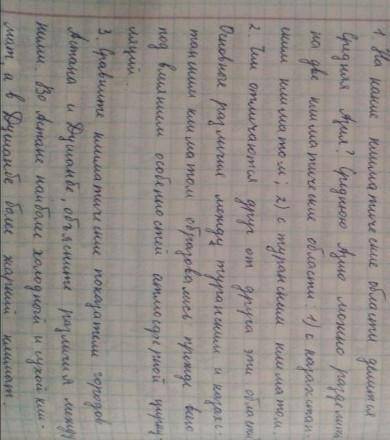 1. На какие климатические области делится
Средняя Азия? Среднюю Азию можно разделить
на две климатические области 1) с казахстан
ским климатом; 2) с туранским климатом
2. Чем отличаются друг от друга эти области
Основное различие между туранским и казахс-
танским климатом образовались прежде всего
под влиянием особенностей атмосферной цирку
ляции.
3. Сравните климатические показатели городов
Астана и Душанбе, объясните различия между
ними. Во Астане наиболее холодной и сухой кли-
мат а в Душанбе более жаркий климат.